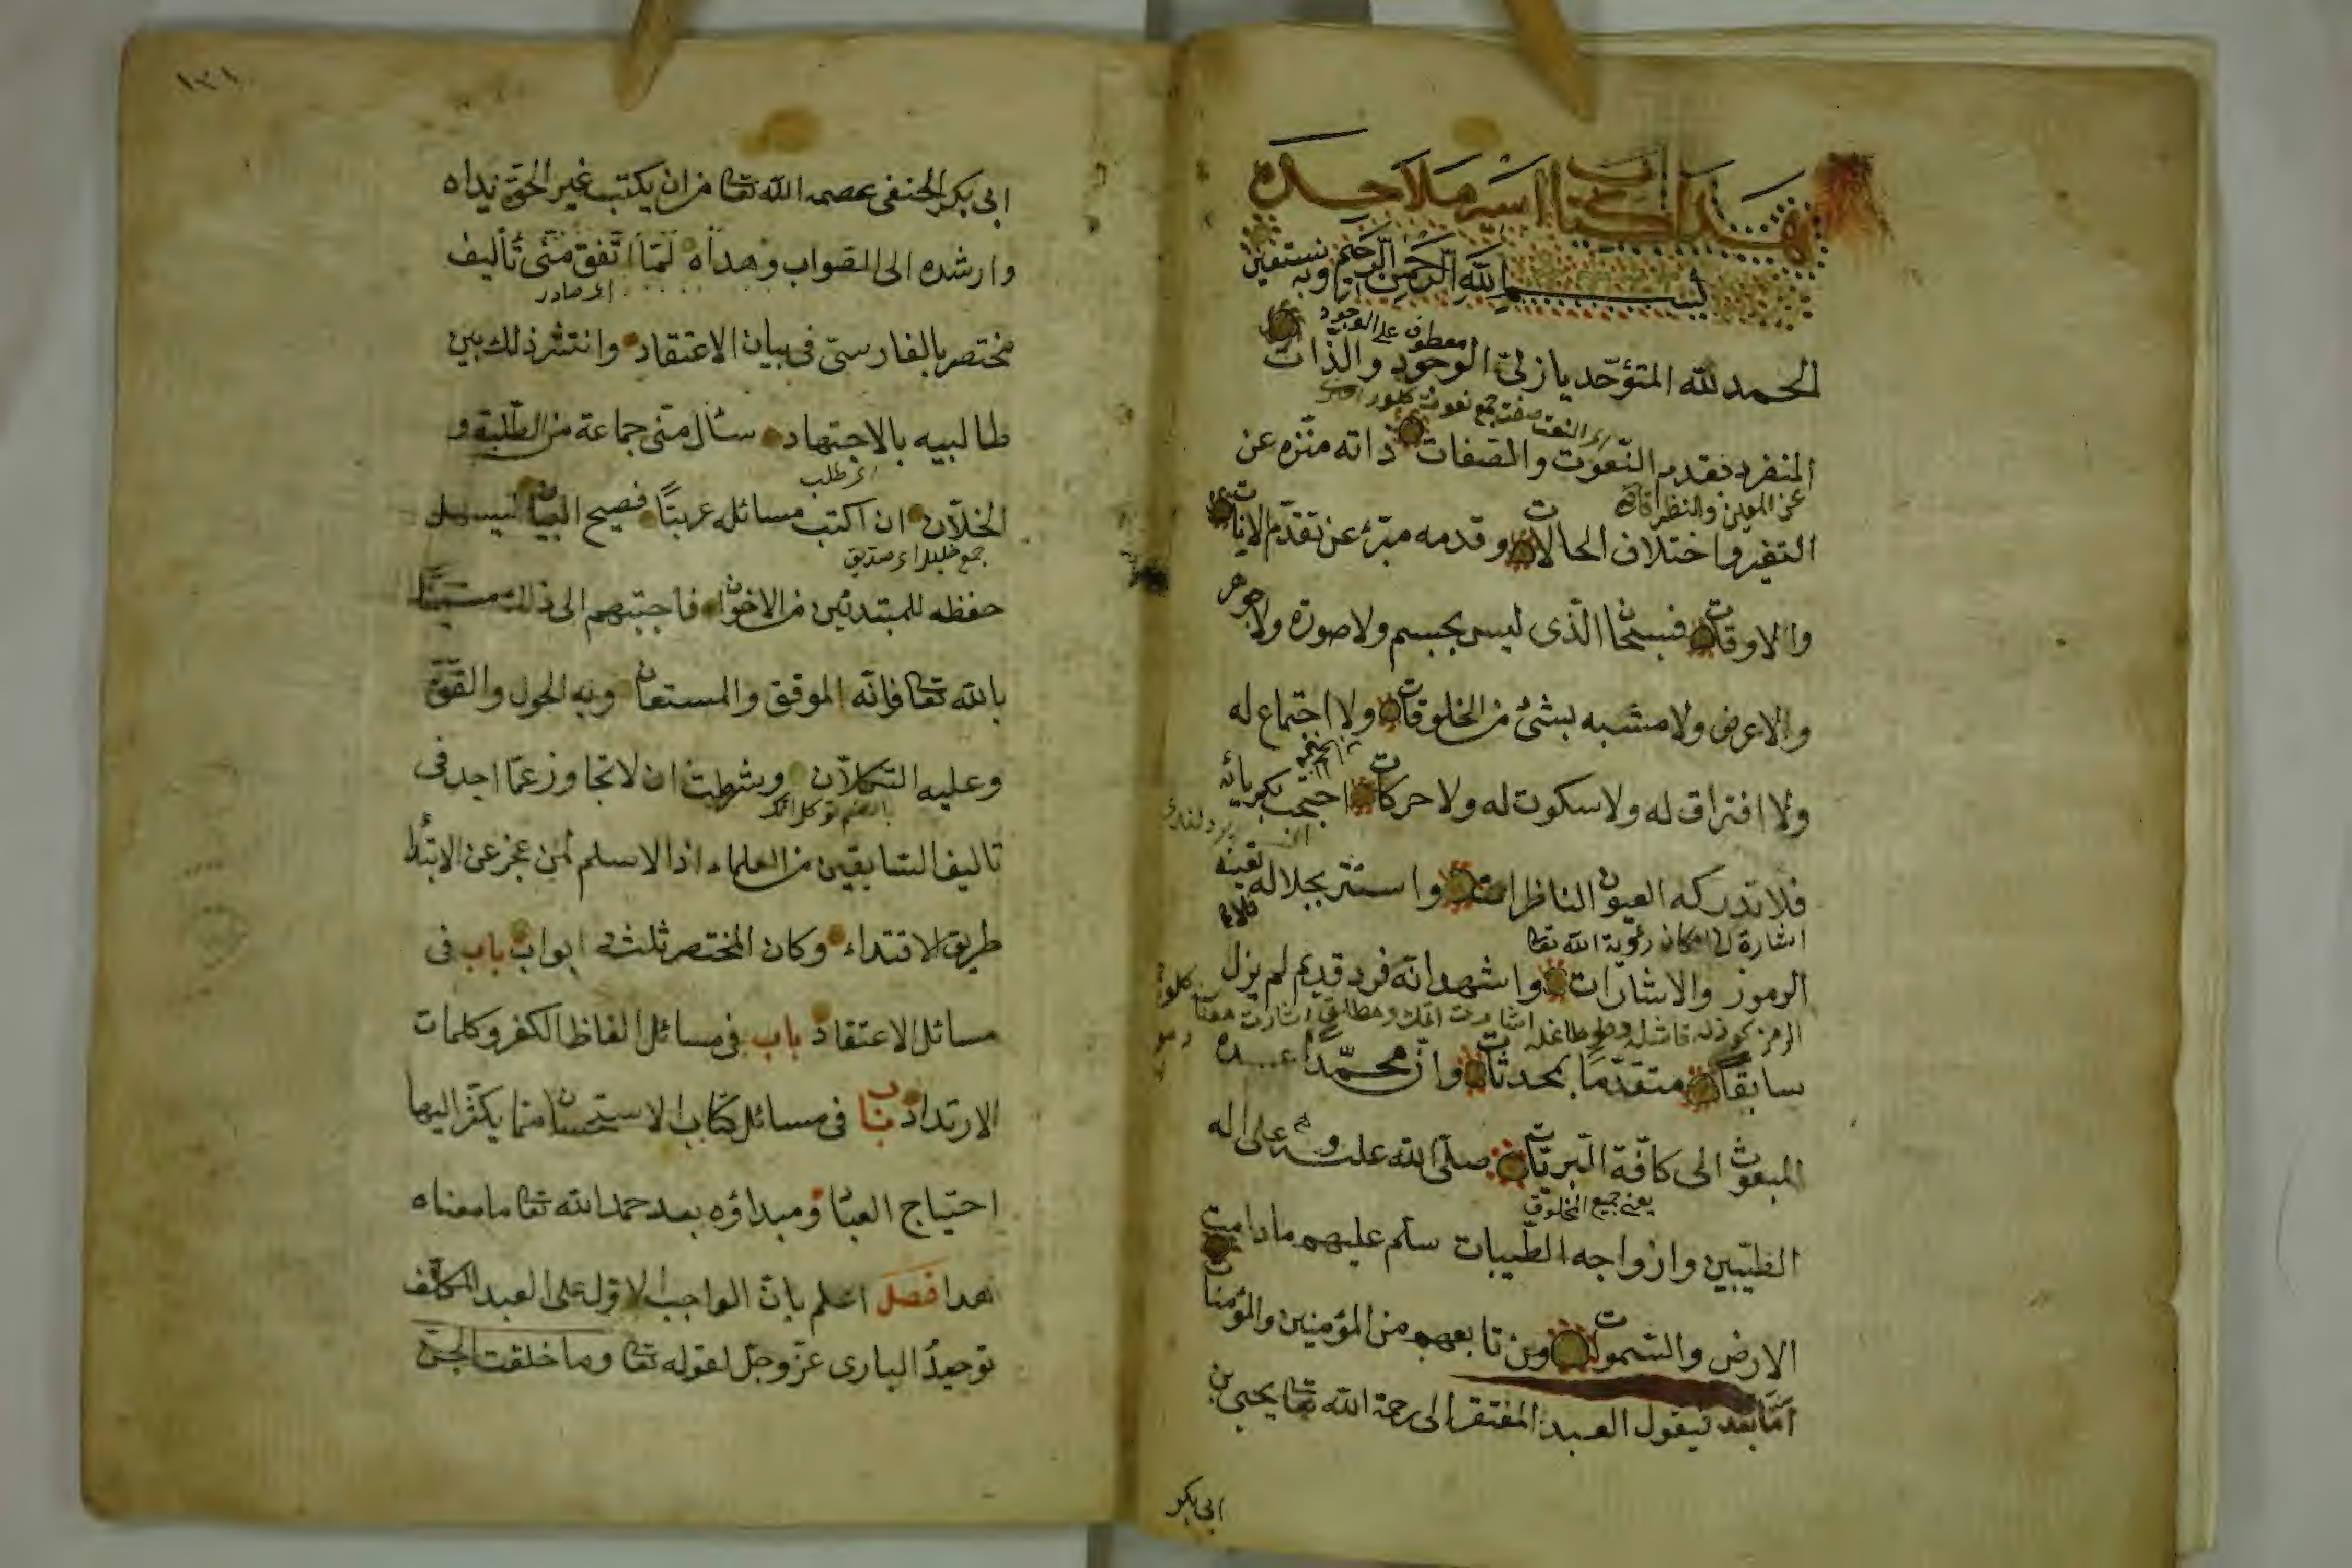 هذا كتاب اسير ملاحده
بسم الله الرحمن الرحيم وبه نستعين
معطوف على الوجود
الحمد لله المتوحد بازلى الوجود والذات
المنفرد بقدم النعوت والصفات ذاته منزه عن
عن المعين والنظر
التغير واختلاف الحالات وقدمه مبرئ عن تقدم الانات
والاوقات فسبحان الذى ليس بجسم ولا صورة ولا جوهر
والاعرض ولا مشبه بشئ من المخلوقات ولا اجتماع له
ولا افتراق له ولا سكوت له ولا حركات احتجب بكبريائه
فلا تدركه العيون الناظرات واستتر بجلاله
اشارة الى امكان رؤية الله تعا
الرموز والاشارات واشهد انه فرد قديم لم يزل
سابقا متقدما بمحدثات وان محمدا عبده
المبعوث الى كافة البريات صلى الله عليه وسلم وعلى اله
يعنى جميع المخلوق
الطيبين وازواجه الطيبات سلم عليهم مادامت
الارض والسموات ومن تابعهم من المؤمنين والمؤمنات
اما بعد فيقول العبد المفتقر الى رحمة الله تعا يحيى بن
ابى بكر
١٢١
ابى بكر الحنفى عصمه الله تعا من ان يكتب غير الحق يداه
وارشده الى الصواب وهداه لما اتفق منى تأليف
اى صادر
مختصر بالفارسى فى بيان الاعتقاد وانتشر ذلك بين
طالبيه بالاجتهاد سئال منى جماعة من الطلبة و
اى طلب
الخلان ان اكتب مسائله عربيا فصيح البيان ليسهل
جمع خليل اى صديق
حفظه للمبتدئين من الاخوان فاجبتهم الى ذلك مستعينا
بالله تعا فانه الموفق والمستعان وبه الحول والقوة
وعليه التكلان وشرطت ان لا تجاوز عما اجد فى
تاليف السابقين من العلماء اذ الاسلم لمن عجز عن الابتداء
طريق الاقتداء وكان المختصر ثلثة ابواب باب فى
مسائل الاعتقاد باب فى مسائل الفاظ الكفر وكلمات
الارتداد باب فى مسائل كتاب الاستحسان مما يكثر اليها
احتياج العباد ومبداؤه بعد حمد الله تعا ما معناه
هذا فصل اعلم بان الواجب الاول على العبد المكلف
توحيد البارى عز وجل لقوله تعا وما خلقت الجن